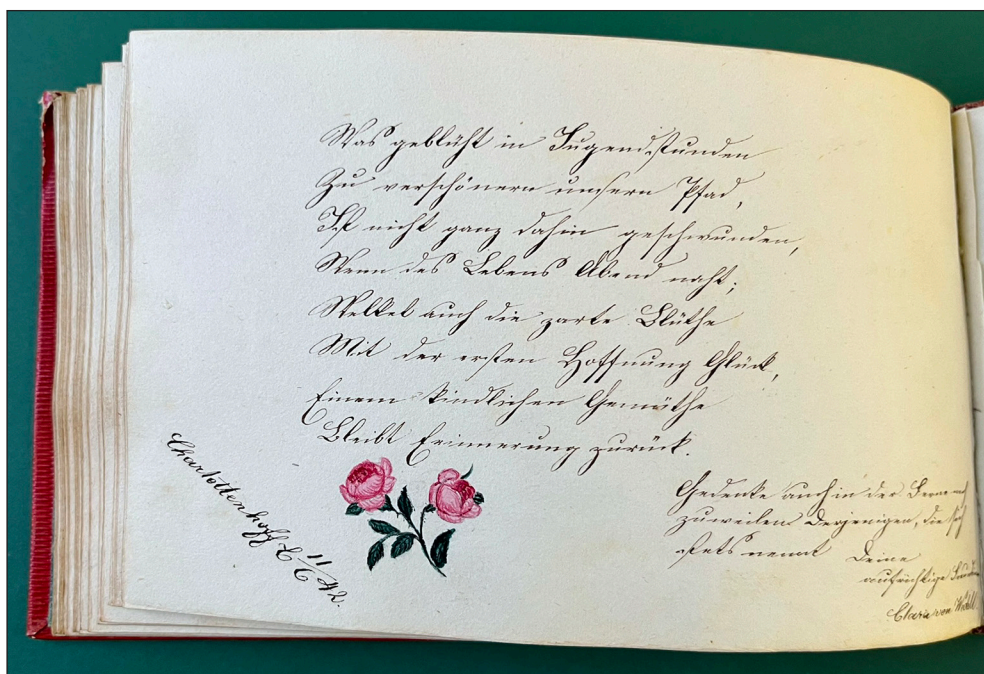 Was geblüht in Jugendstunden
Zu verschönern unsern Pfad,
Ist nicht ganz dahin geschwunden,
Wenn des Lebens Abend naht;
Welket auch die zarte Blüthe
Mit der ersten Hoffnung Glück,
Einem kindlichen Gemüthe
Bleibt Erinnerung zurück.
Gedenke auch in der
zuweilen derjenigen, die sich
stets nennt Deine
aufrichtige
Clara von
Charlottenhoff d 11/6 42.